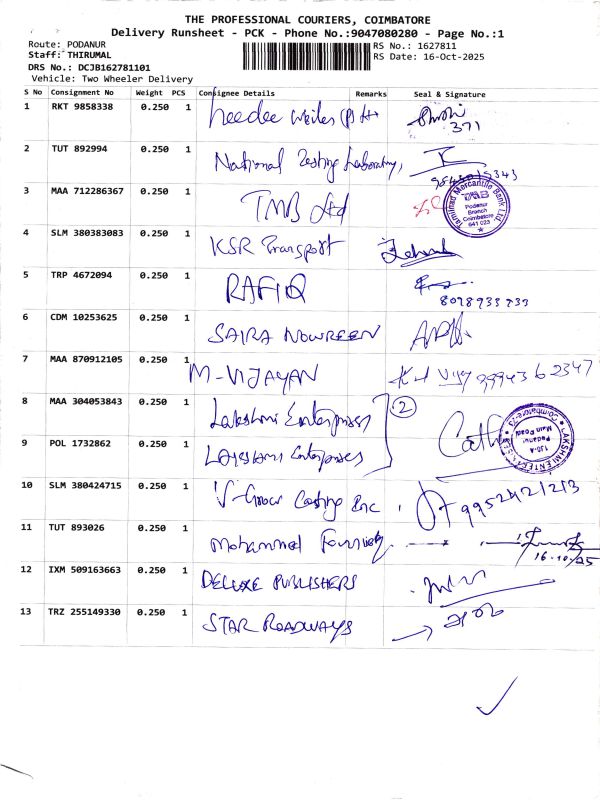 THE PROFESSIONAL COURIERS, COIMBATORE
Delivery Runsheet - PCK - Phone No.:9047080280 - Page No.:1
Route: PODANUR
RS No.: 1627811
Staff: THIRUMAL
RS Date: 16-Oct-2025
DRS No.: DCJB162781101
Vehicle: Two Wheeler Delivery
S No Consignment No Weight PCS Consignee Details Remarks Seal & Signature
1 RKT 9858338 0.250 1 (P) 371
2 TUT 892994 0.250 1 National Testing Laboratory,
3 MAA 712286367 0.250 1 TMB Ltd
Tamilnad Mercantile Bank Ltd
TMB
Podanur
Branch
Coimbatore
641 023
4 SLM 380383083 0.250 1 KSR Transport
5 TRP 4672094 0.250 1 RAFIQ
6 CDM 10253625 0.250 1 SAIRA NOWREEN
7 MAA 870912105 0.250 1 M-VIJAYAN 9994362347
8 MAA 304053843 0.250 1 Lakshmi Enterprises 2
9 POL 1732862 0.250 1 Lakshmi Enterprises
LAKSHMI ENTERPRISES
130-A
Podanur
Main Road
Coimbatore-23
10 SLM 380424715 0.250 1 Casting Inc
11 TUT 893026 0.250 1 Mohammed
16.10.25
12 IXM 509163663 0.250 1 DELUXE PUBLISHERS
13 TRZ 255149330 0.250 1 STAR ROADWAYS